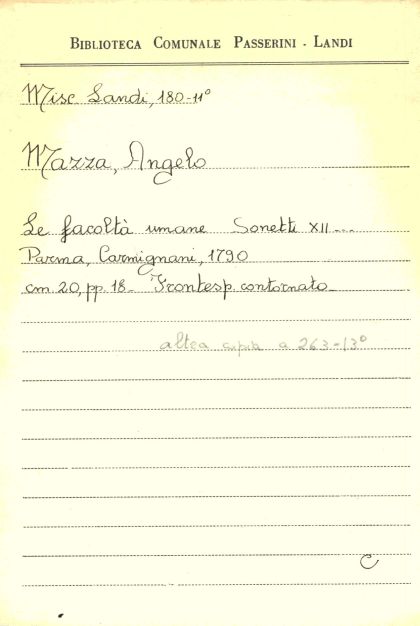 BIBLIOTECA COMUNALE PASSERINI - LANDI
Misc Landi, 180-11°
Mazza, Angelo
Le facoltà umane Sonetti XII...
Parma, Carmignani, 1790
cm 20, pp. 18- Frontesp. contornato-
altra copia a 263-13°
C